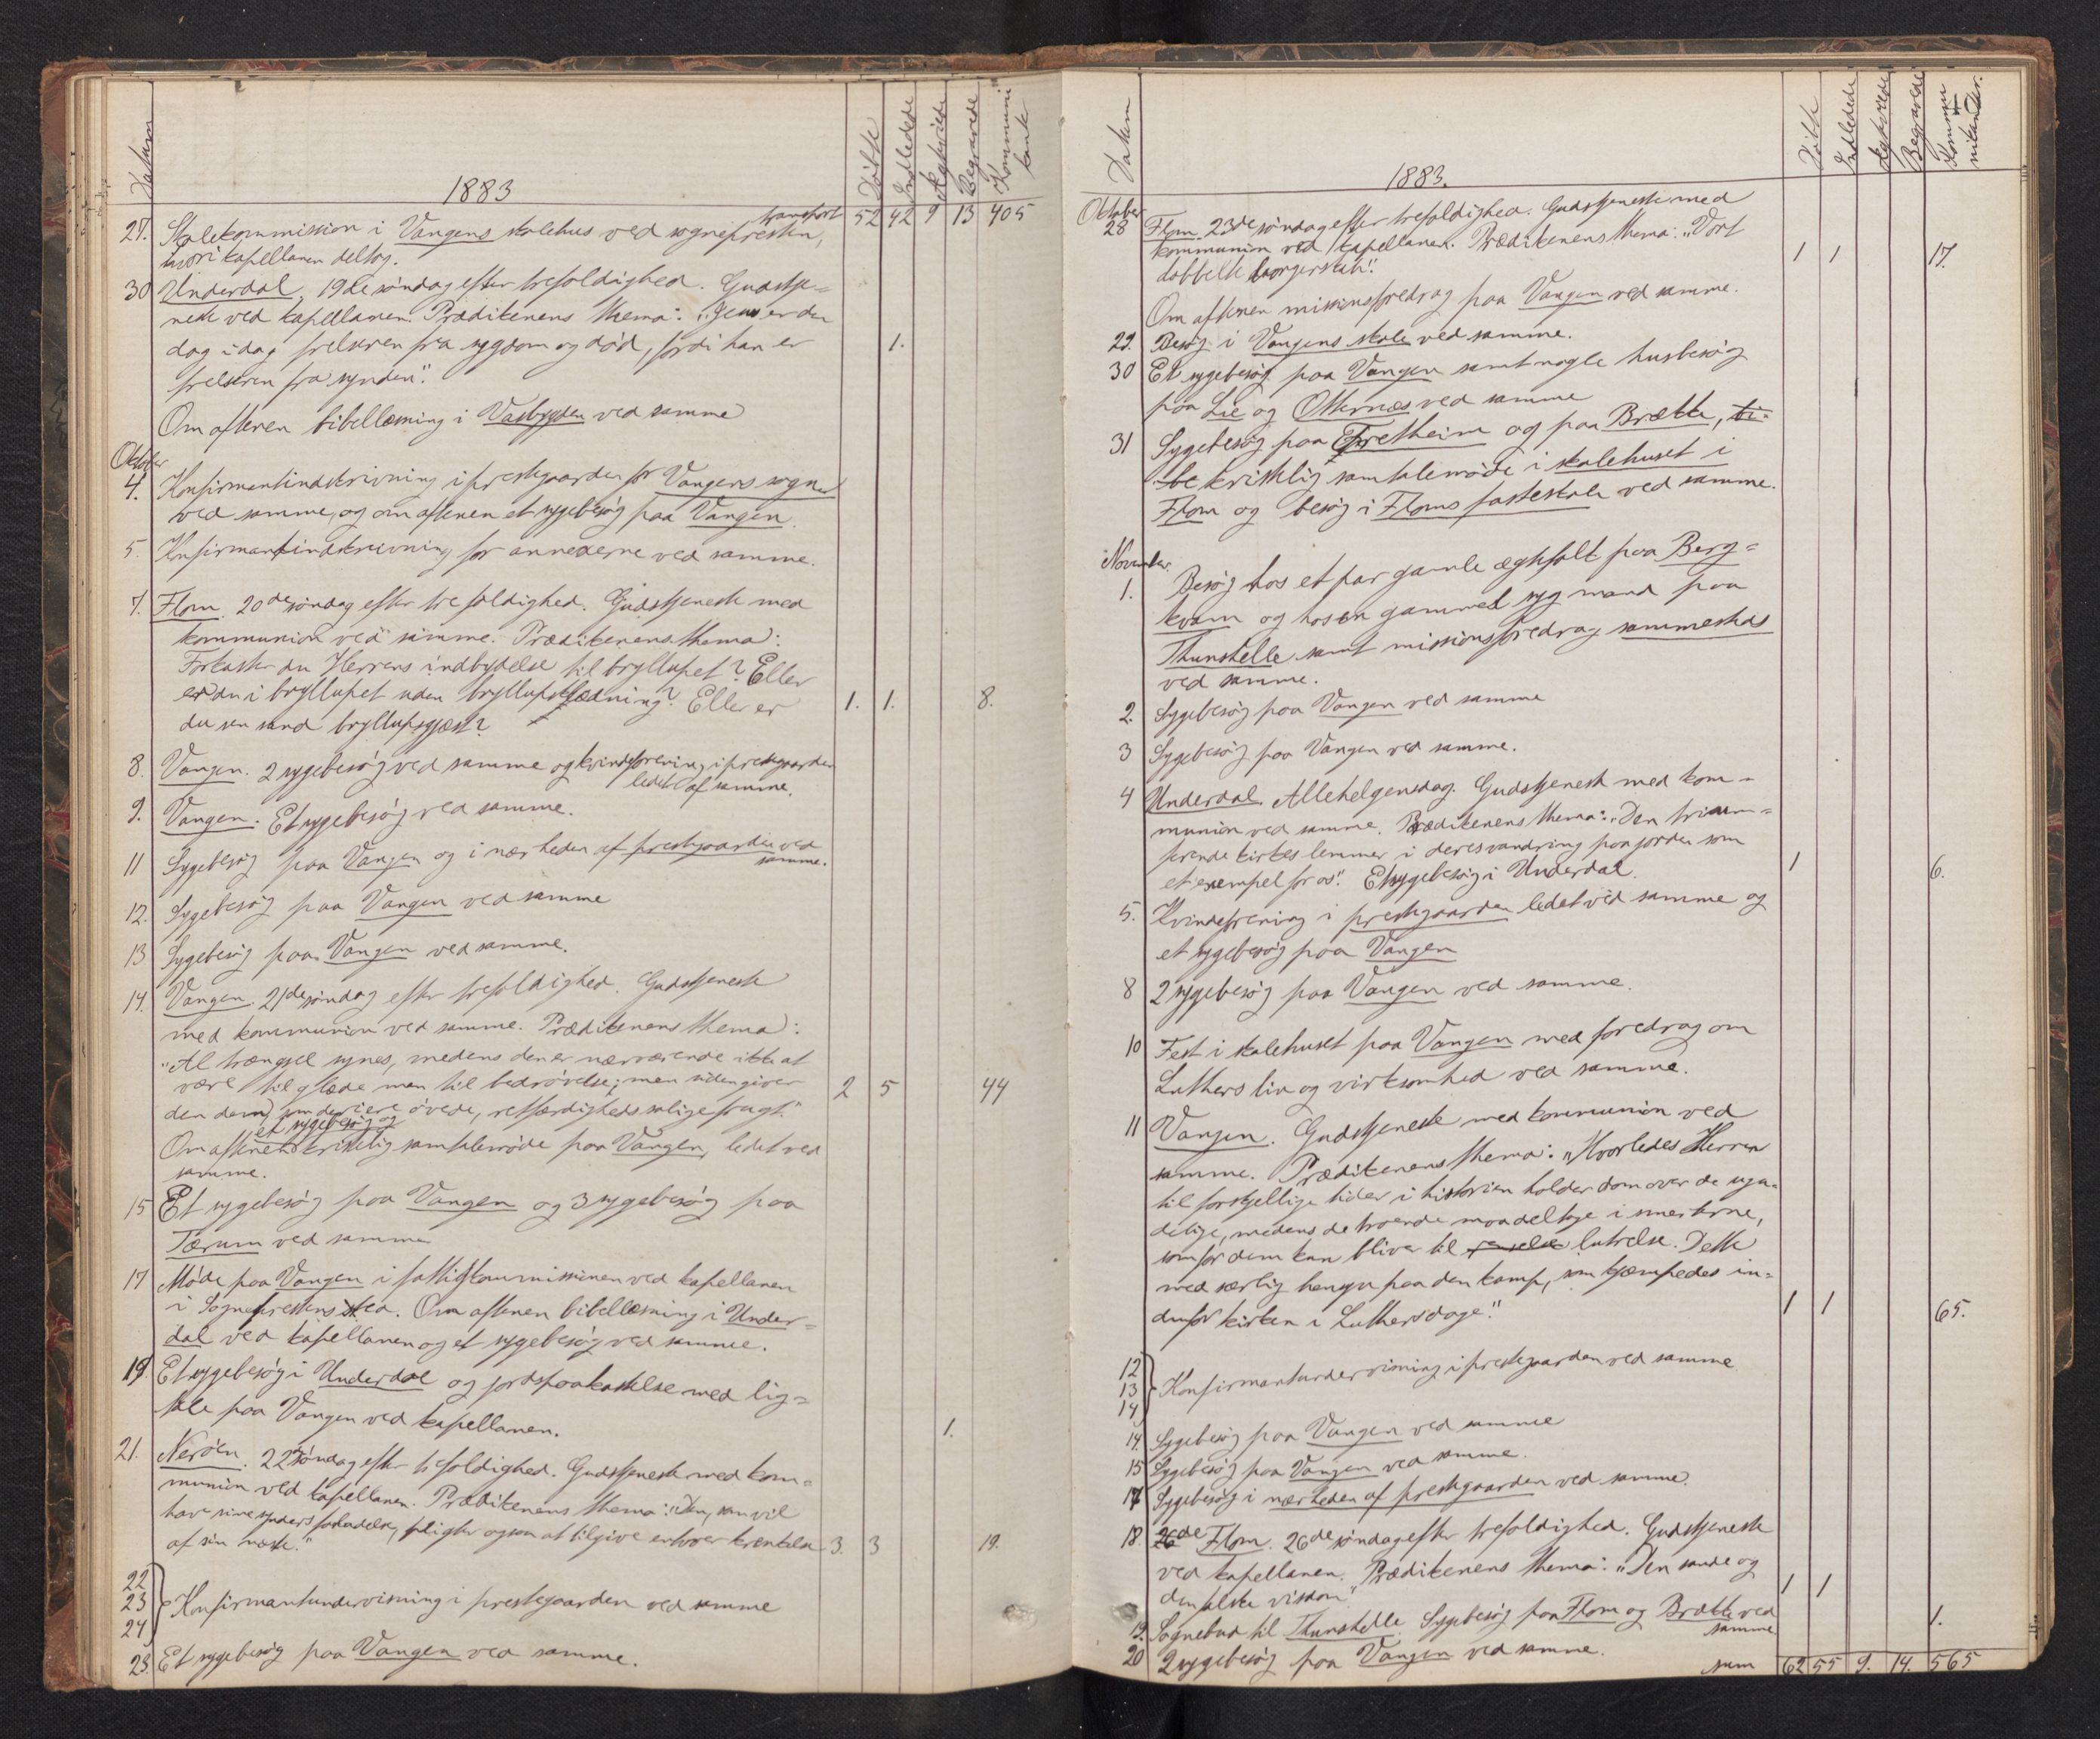 Datum
1883
Døbte
Indledede
Ægteviede
Begravede
Kommuni
kante
transport 52 42 9 13 405
27. Skolekommission i Vangens skolehus ved sognepresten,
hvori kapellanen deltog.
30 Underdal, 19de søndag efter trefoldighed. Gudstje=
neste ved kapellanen. Prædikenens thema: "Jesus er den
dag idag frelseren fra sygdom og død, fordi han er 1.
frelseren fra synden".
Om aftenen bibellæsning i Vasbygden ved samme
Oktober
4. Konfirmantindskrivning i prestegaarden for Vangens sogn
ved samme, og om aftenen et sygebesøg paa Vangen.
5. Konfirmantindskrivning for annexerne ved samme.
7. Flom. 20de søndag efter trefoldighed. Gudstjeneste med
kommunion ved samme. Prædikenens thema:
Forkaster du Herrens indbydelse til bryllupet? Eller
er du i bryllupet uden bryllupsklædning? Eller er 1. 1. 8.
du en sand bryllupsgjæst?
8. Vangen. 2 sygebesøg ved samme og kvindeforening i prestegaarden
ledet af samme.
9. Vangen. Et sygebesøg ved samme.
11 Sygebesøg paa Vangen og i nærheden af prestegaarden ved
samme.
12. Sygebesøg paa Vangen ved samme
13 Sygebesøg paa Vangen ved samme.
14. Vangen. 21de søndag efter trefoldighed. Gudstjeneste
med kommunion ved samme. Prædikenens thema:
"Al trængsel synes, medens den er nærværende ikke at
være til glæde men til bedrøvelse; men siden giver 2 5 44
den dem, som derved ere øvede, retfærdigheds salige frugt."
et sygebesøg og
Om aftenen kristelig samtalemøde paa Vangen, ledet ved
samme.
15 Et sygebesøg paa Vangen og 3 sygebesøg paa
Tærum ved samme
17 Møde paa Vangen i fattigkommissionen ved kapellanen
i Sogneprestens sted. Om aftenen bibellæsning i Under=
dal ved kapellanen og et sygebesøg ved samme.
19. Et sygebesøg i Underdal og jordspaakastelse med lig=
tale paa Vangen ved kapellanen. 1.
21. Nerøen. 22de søndag efter trefoldighed. Gudstjeneste med kom=
munion ved kapellanen. Prædikenens thema: "Den, som vil
have sine synders forladelse, pligter ogsaa at tilgive enhver krænkelse
af sin næste." 3. 3 19.
22
23 Konfirmantundervisning i prestegaarden ved samme
24
23. Et sygebesøg paa Vangen ved samme.
Datum
1883.
Døbte
Indledede
Ægteviede
Begravede
Kommu
nikanter.
Oktober
28 Flom. 23de søndag efter trefoldighed. Gudstjeneste med
kommunion ved kapellanen. Prædikenens thema: "Vort 1 1 17.
dobbelte borgerskab".
Om aftenen missionsforedrag paa Vangen ved samme.
29. Besøg i Vangens skole ved samme.
30 Et sygebesøg paa Vangen samt nogle husbesøg
paa Lie og Otternæs ved samme
31 Sygebesøg paa Fretheim og paa Brække, bi=
be kristelig samtalemøde i skolehuset i
Flom og besøg i Floms fasteskole ved samme.
November.
1. Besøg hos et par gamle ægtefolk paa Berg=
kvam og hos en gammel syg mand paa
Thunshelle samt missionsforedrag sammesteds
ved samme.
2. Sygebesøg paa Vangen ved samme
3 Sygebesøg paa Vangen ved samme.
4 Underdal. Allehelgensdag. Gudstjeneste med kom=
munion ved samme. Prædikenens thema: "Den trium=
ferende kirkes lemmer i deres vandring paa jorden som
et exempel for os". Et sygebesøg i Underdal. 1 6.
5. Kvindeforening i prestegaarden ledet ved samme og
et sygebesøg paa Vangen
8 2 sygebesøg paa Vangen ved samme.
10 Fest i skolehuset paa Vangen med foredrag om
Luthers liv og virksomhed ved samme.
11 Vangen. Gudstjeneste med kommunion ved
samme. Prædikenens thema: "Hvorledes Herren
til forskjellige tider i historien holder dom over de ugu=
delige, medens de troende maa deltage i smerterne,
som for dem kun bliver til renselse lutrelse. Dette
med særlig hensyn paa den kamp, som kjæmpedes in=
denfor kirken i Luthers dage". 1 1 65.
12
13 Konfirmantundervisning i prestegaarden ved samme
14
14. Sygebesøg paa Vangen ved samme
15 Sygebesøg paa Vangen ved samme.
17 Sygebesøg i nærheden af prestegaarden ved samme.
18. 26de Flom. 26de søndag efter trefoldighed. Gudstjeneste
ved kapellanen. Prædikenens thema: "Den sande og
den falske visdom". 1 1
19. Sognebud til Thunshelle. Sygebesøg paa Flom og Brække ved 1.
samme
20 2 sygebesøg paa Vangen ved samme.
sum 62 55 9. 14. 565